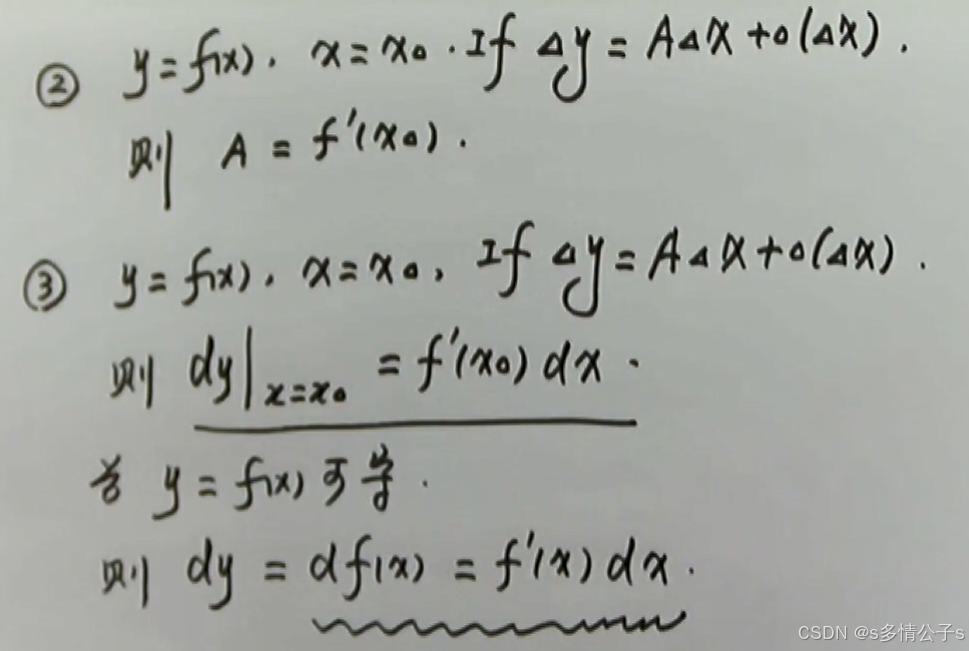 ② y = f(x), x = x₀. If Δy = AΔx + o(Δx).
则 A = f'(x₀).
③ y = f(x), x = x₀, If Δy = AΔx + o(Δx).
则 dy|ₓ₌ₓ₀ = f'(x₀) dx.
若 y = f(x) 可导.
则 dy = df(x) = f'(x) dx.
CSDN @s多情公子s